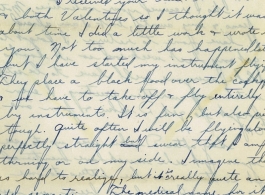 I received your
& both Valentines so I thought it was
about time I did a little work & wrote
Not too much has happened
but I have started my instrument flying
They place a black hood over the
so we have to take off & fly entirely
by instruments. It is fun, but
tough. Quite often I will be flying along
perfectly straight but swear that I am
turning or on my side. I imagine th
is hard to realize, but it really quite an
The medical